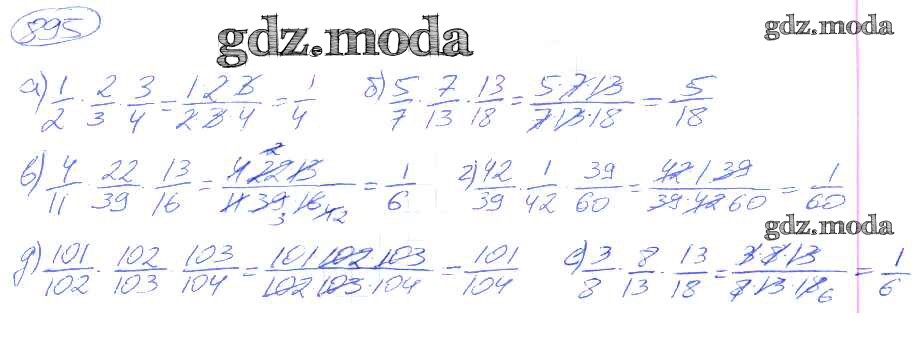 895
gdz.moda
gdz.moda
а) 1/2 · 2/3 · 3/4 = 1 2 3 / 2 · 3 · 4 = 1/4 б) 5/7 · 7/13 · 13/18 = 5 · 7 · 13 / 7 · 13 · 18 = 5/18
в) 4/11 · 22/39 · 13/16 = 4 22 13 / 11 39 16 = 1/6 г) 42/39 · 1/42 · 39/60 = 42 1 39 / 39 · 42 60 = 1/60
gdz.moda
д) 101/102 · 102/103 · 103/104 = 101 102 103 / 102 103 · 104 = 101/104 е) 3/8 · 8/13 · 13/18 = 3 · 8 · 13 / 8 · 13 · 18 = 1/6